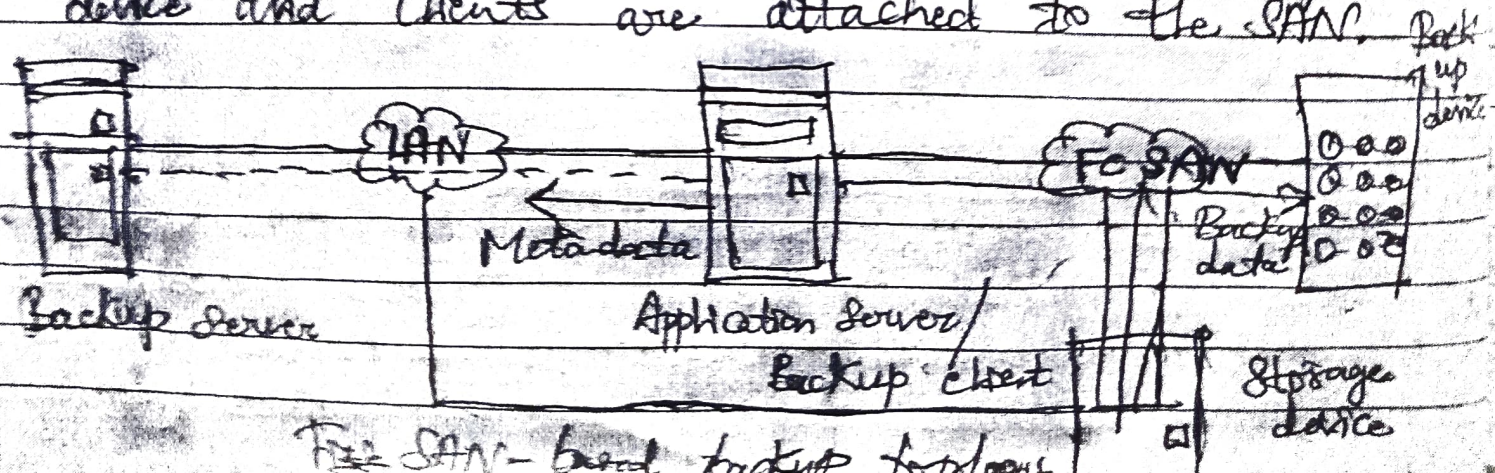 device and clients are attached to the SAN.
Back
up
device
LAN
FC SAN
Metadata
Backup
data
Backup Server
Application Server/
Backup client
Storage
device
Fig: SAN-based backup topology